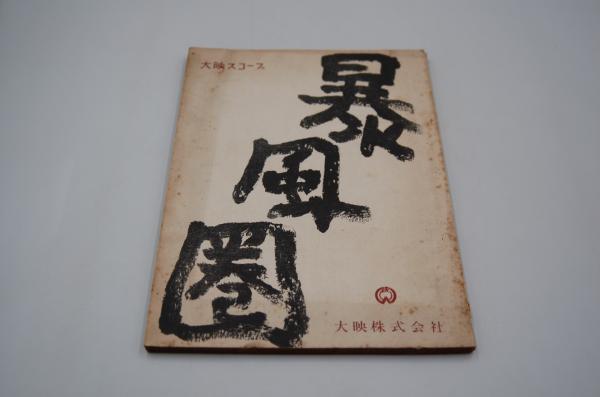 大映スコープ
暴風圏
大映株式会社